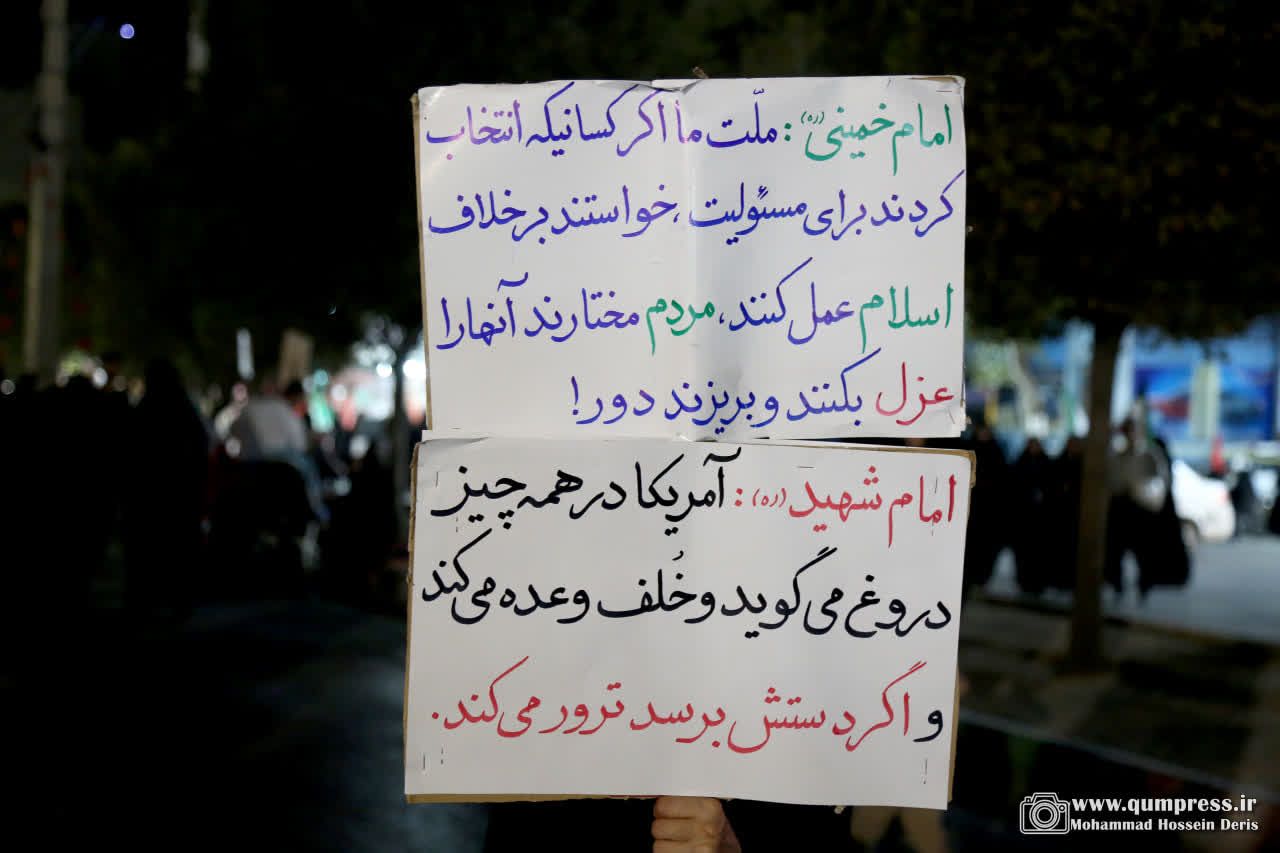 امام خمینی (ره) : ملّت ما اگر کسانیکه انتخاب
کردند برای مسئولیت ، خواستند برخلاف
اسلام عمل کنند، مردم مختارند آنها را
عزل بکنند و بریزند دور!
امام شهید (ره) : آمریکا در همه چیز
دروغ می گوید و خُلف وعده می کند
و اگر دستش برسد ترور می کند.
www.qumpress.ir
Mohammad Hossein Deris